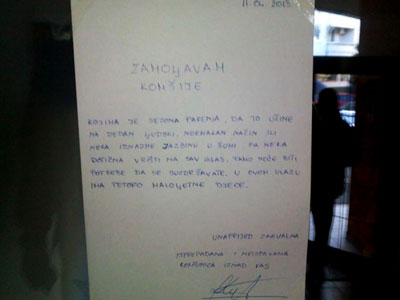 11.04.2013
ZAMOLJAVAM
KOMŠIJE
KOJIMA JE SEZONA PARENJA, DA TO UČINE
NA JEDAN LJUDSKI, NORMALAN NAČIN ILI
NEKA IZNAĐE JAZBINU U ŠUMI PA NEKA
DOTIČNA VRIŠTI NA SAV GLAS, TAKO NEĆE BITI
POTREBE DA SE SUZDRŽAVATE. U OVOM ULAZU
IMA PETORO MALOLJETNE DJECE.
UNAPRIJED ZAHVALNA
I
KOMŠINICA IZNAD VAS